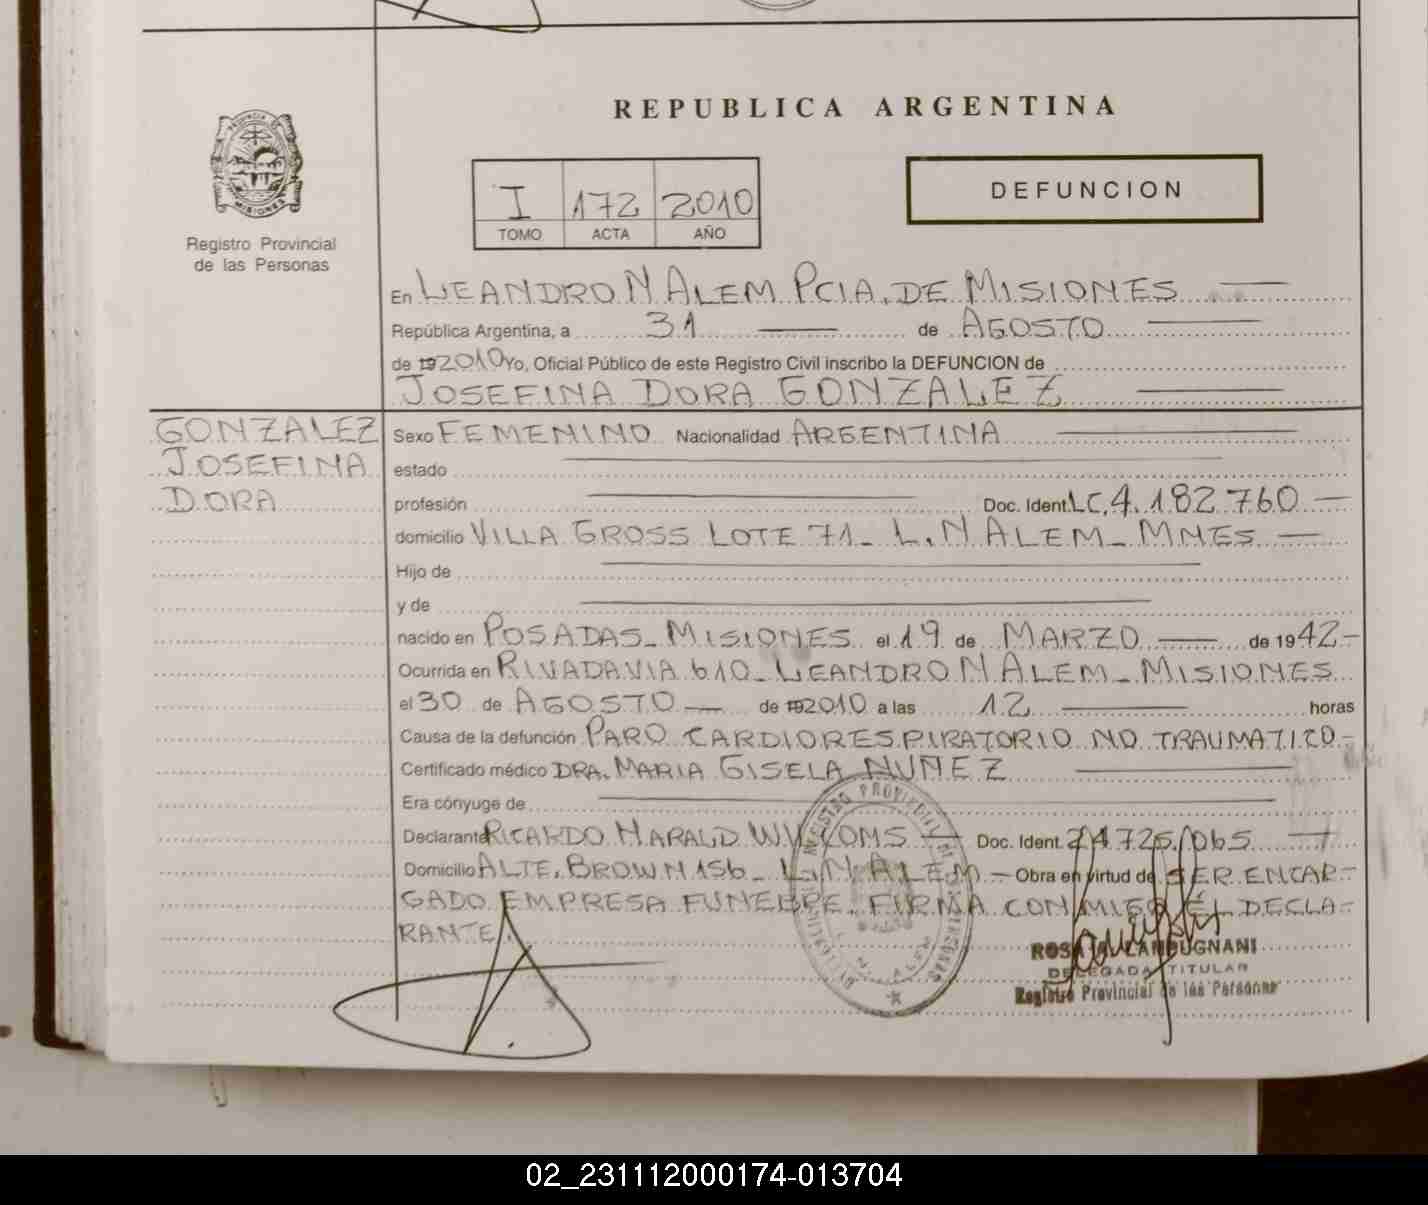 REPUBLICA ARGENTINA
PROVINCIA DE
MISIONES
Registro Provincial
de las Personas
I 172 2010
TOMO ACTA AÑO
DEFUNCION
En LEANDRO N ALEM PCIA. DE MISIONES
República Argentina, a 31 de AGOSTO
de 192010 Yo, Oficial Público de este Registro Civil inscribo la DEFUNCION de
JOSEFINA DORA GONZALEZ
GONZALEZ
JOSEFINA
DORA
Sexo FEMENINO Nacionalidad ARGENTINA
estado
profesión Doc. Ident. LC. 4.182.760
domicilio VILLA GROSS LOTE 71_ L. N ALEM_ MNES
Hijo de
y de
nacido en POSADAS_ MISIONES el 19 de MARZO de 1942
Ocurrida en RIVADAVIA 610_ LEANDRO N ALEM_ MISIONES
el 30 de AGOSTO de 192010 a las 12 horas
Causa de la defunción PARO CARDIORESPIRATORIO NO TRAUMATICO
Certificado médico DRA. MARIA GISELA NUÑEZ
Era cónyuge de
Declarante RICARDO HARALD Doc. Ident. 24.725.065
Domicilio ALTE. BROWN 156_ L. N ALEM Obra en virtud de SER ENCAR-
GADO EMPRESA FUNEBRE. FIRMA CONMIGO EL DECLA-
RANTE.
ROSA LAMBUGNANI
DELEGADA TITULAR
Registro Provincial de las Personas
02_231112000174-013704